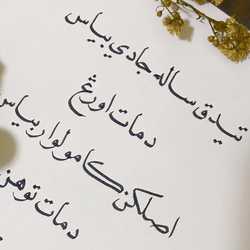 تيدق ساله جادي بياس
دمات اورڠ
اصلكن كامو لوار بياس
دمات توهن